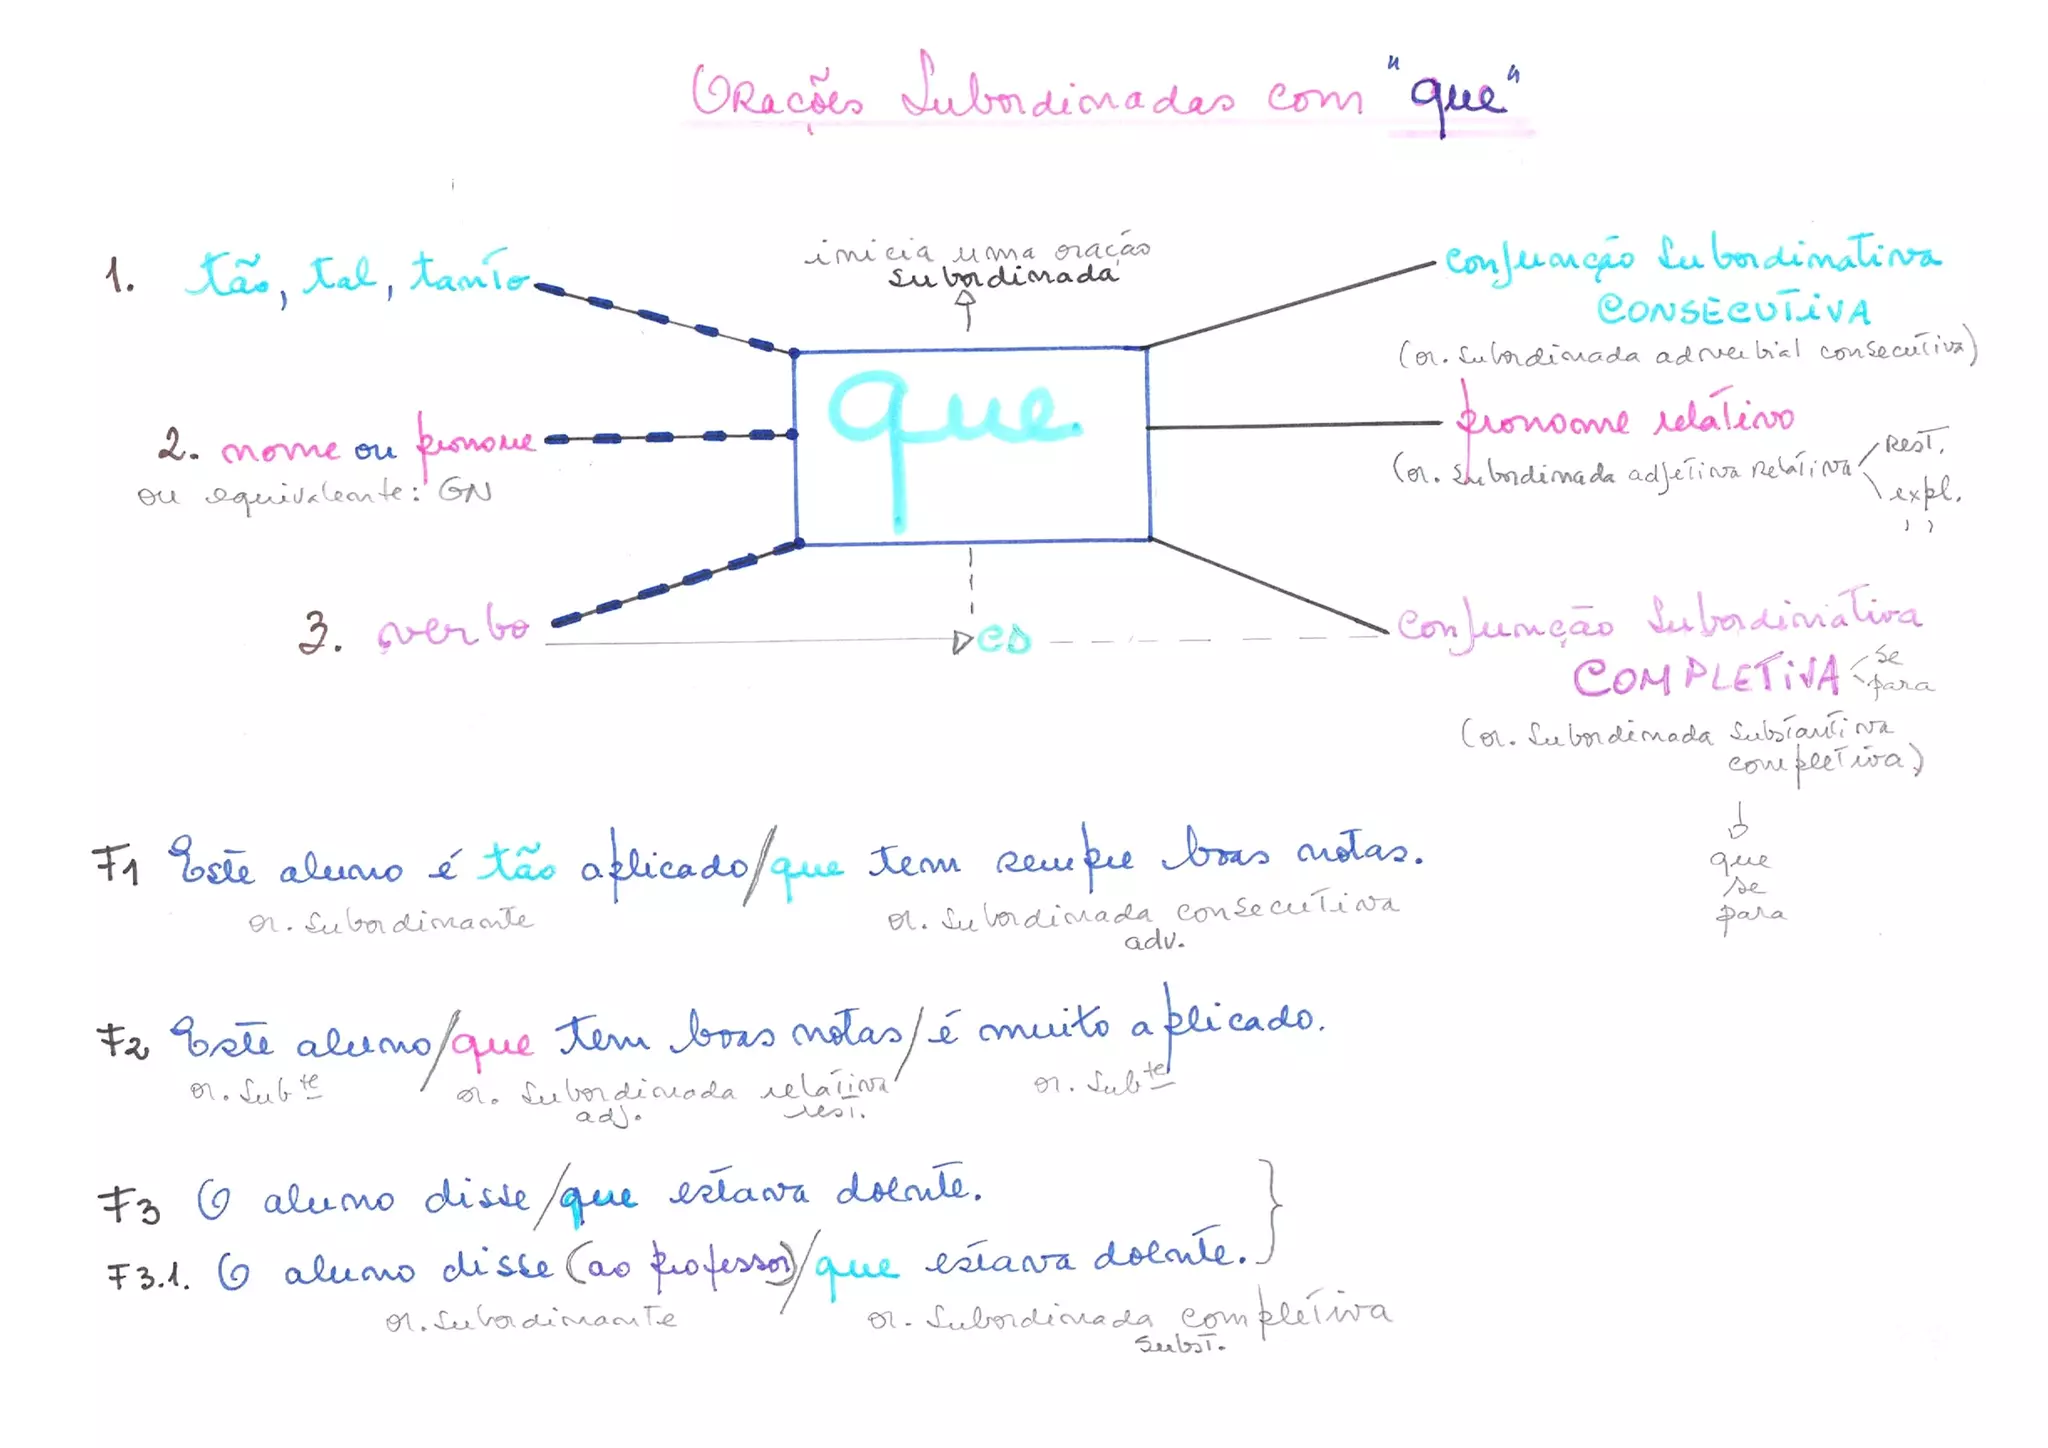 Orações Subordinadas com "que"
inicia uma oração
subordinada
1. tão, tal, tanto
conjunção subordinativa
CONSECUTIVA
(or. subordinada adverbial consecutiva)
que
2. nome ou pronome
ou equivalente: GN
pronome relativo
(or. subordinada adjetiva relativa
Rest.
expl.
, ,
3. verbo
CD
conjunção subordinativa
COMPLETIVA
se
para
(or. subordinada substantiva
completiva)
que
se
para
F1 Este aluno é tão aplicado/que tem sempre boas notas.
or. subordinante or. subordinada consecutiva
adv.
F2 Este aluno/que tem boas notas/é muito aplicado.
or. subte or. subordinada relativa or. subte
adj. rest.
F3 O aluno disse/que estava doente.
F3.1. O aluno disse (ao professor)/que estava doente.
or. subordinante or. subordinada completiva
subst.